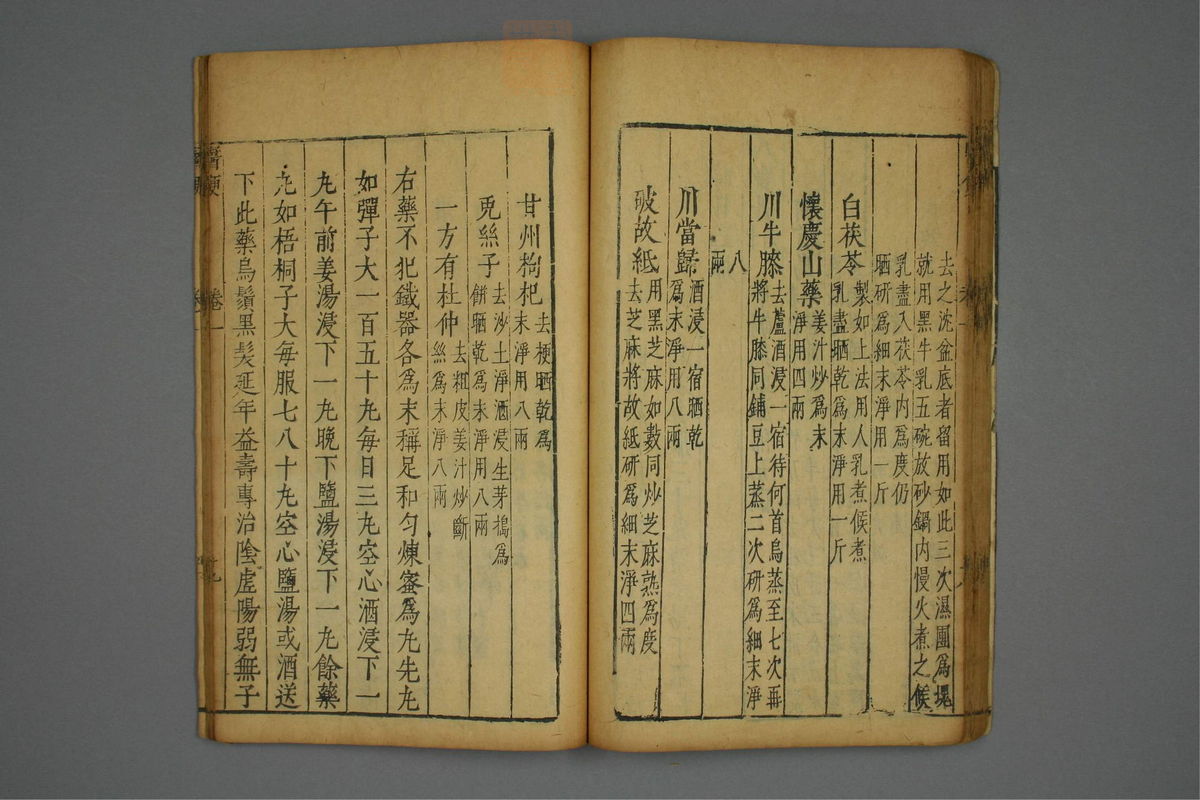 去之沈盆底者留用如此三次濕團為塊
就用黑牛乳五碗放砂鍋內慢火煮之候
乳盡入茯苓內為度仍
晒研為細末淨用一斤
白茯苓製如上法用人乳煮候煮
乳盡晒乾為末淨用一斤
懷慶山藥姜汁炒為末
淨用四兩
川牛膝去蘆酒浸一宿待何首烏蒸至七次再
將牛膝同鋪豆上蒸二次研為細末淨
八
兩
川當歸酒浸一宿晒乾
為末淨用八兩
破故紙用黑芝麻如數同炒芝麻熟為度
去芝麻將故紙研為細末淨四兩
甘州枸杞去梗晒乾為
末淨用八兩
兎絲子去沙土淨酒浸生芽搗為
餅晒乾為末淨用八兩
一方有杜仲去粗皮姜汁炒斷
絲為末淨八兩
右藥不犯鐵器各為末稱足和匀煉蜜為丸先丸
如彈子大一百五十丸每日三丸空心酒浸下一
丸午前姜湯浸下一丸晚下鹽湯浸下一丸餘藥
丸如梧桐子大每服七八十丸空心鹽湯或酒送
下此藥烏鬚黑髮延年益壽專治陰虛陽弱無子
卷一